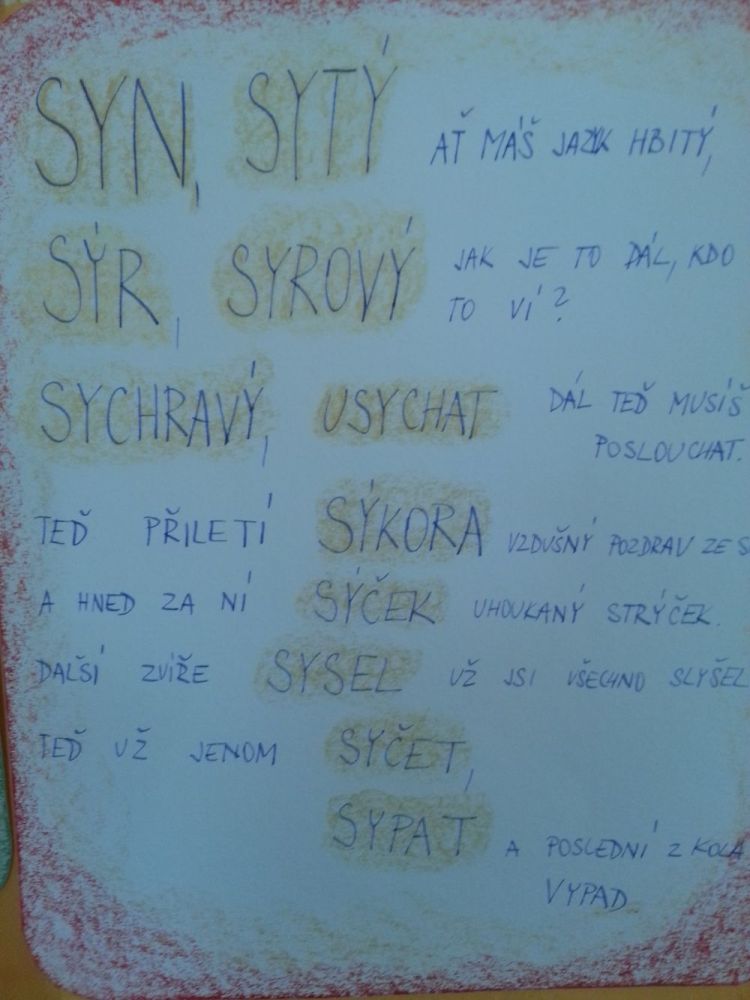 SYN, SYTÝ AŤ MÁŠ JAZYK HBITÝ,
SÝR, SYROVÝ JAK JE TO DÁL, KDO
TO VÍ?
SYCHRAVÝ, USYCHAT DÁL TEĎ MUSÍŠ
POSLOUCHAT.
TEĎ PŘILETÍ SÝKORA VZDUŠNÝ POZDRAV ZE
A HNED ZA NÍ SÝČEK UHOUKANÝ STRÝČEK.
DALŠÍ ZVÍŘE SYSEL UŽ JSI VŠECHNO SLYŠEL
TEĎ UŽ JENOM SYČET,
SYPAT A POSLEDNÍ Z KOLA
VYPAD